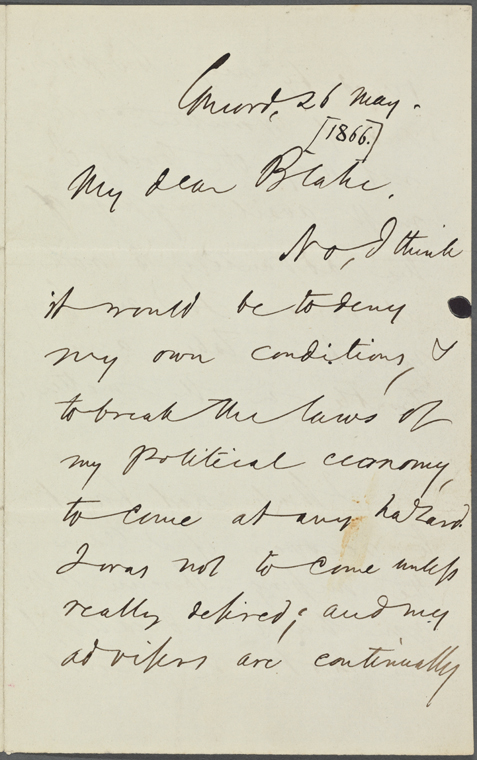 Concord, 26 May.
[1866.]
My dear Blake,
No, I think
it would be to deny
my own conditions, &
to break the laws of
my political economy,
to come at any hazard.
I was not to come unless
really desired; and my
advisers are continually